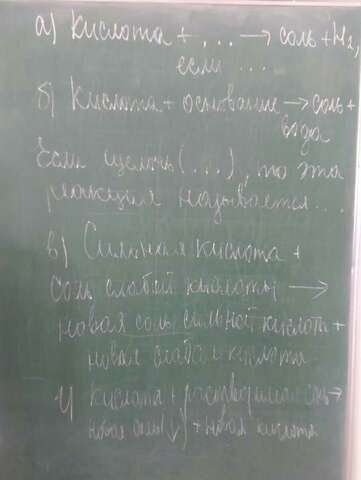 а) Кислота + ... → соль + H₂,
если ...
б) Кислота + основание → соль +
вода
Если щелочь (...), то эта
реакция называется...
в) Сильная кислота +
соль слабой кислоты →
новая соль сильной кислоты +
новая слабая кислота
г) Кислота + растворимая соль →
новая соль (↓) + новая кислота